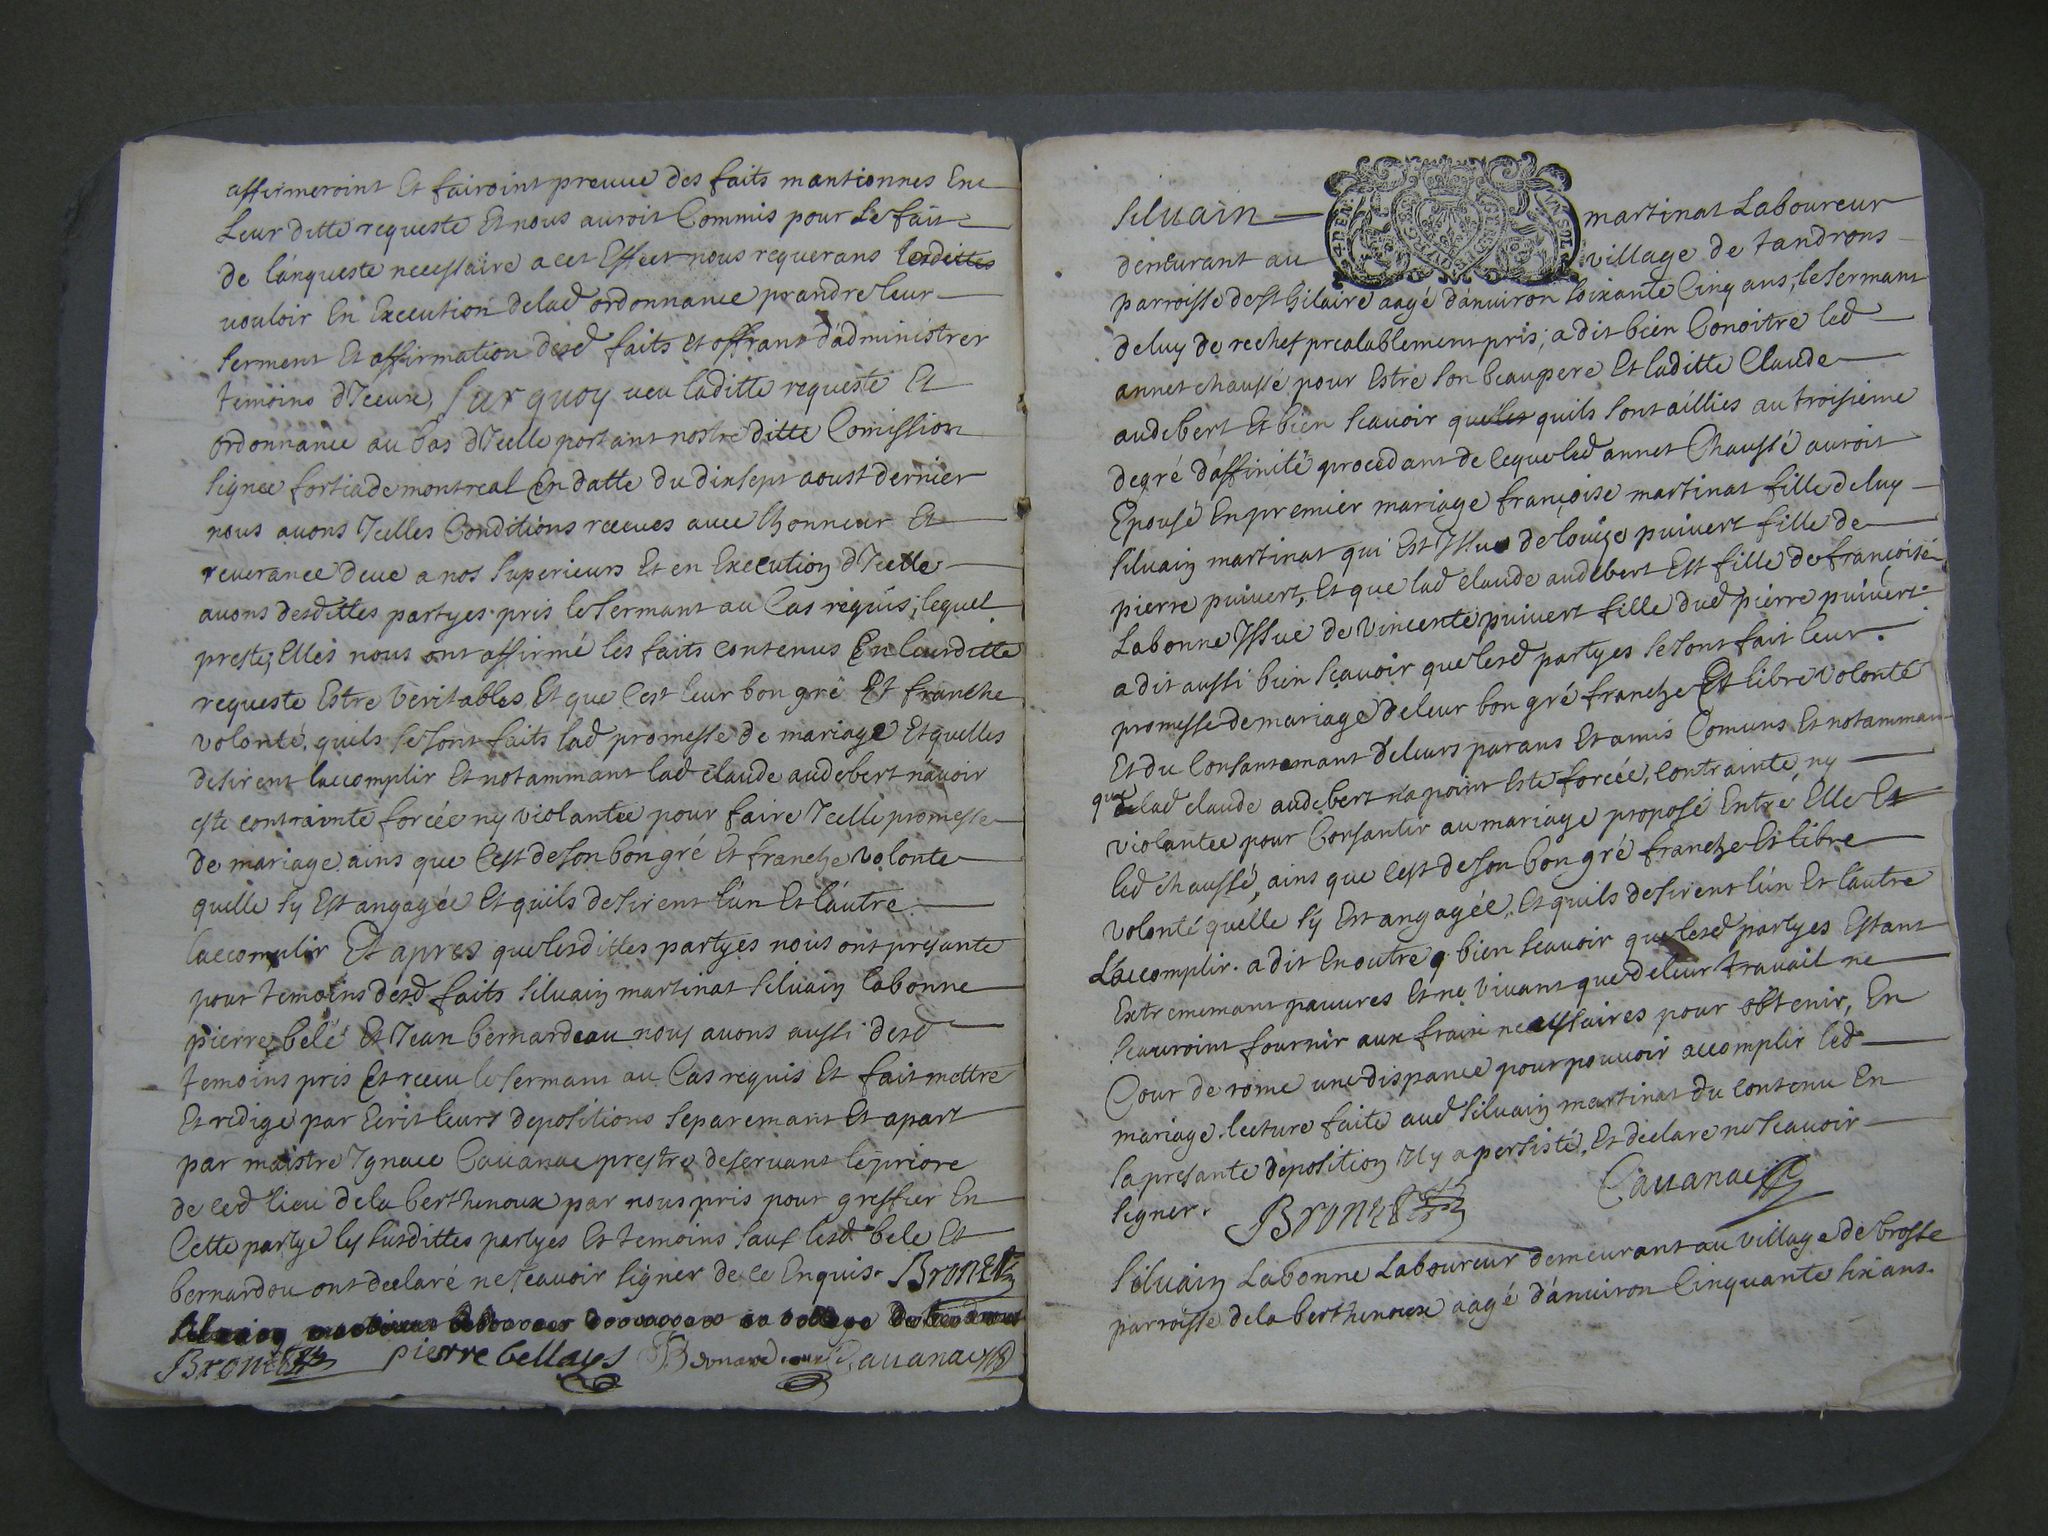 affirmeroint Et fairoint preuue des faits mantionnes Ene
Leur ditte requeste Et nous auroit Commis pour Le fait
de l'anqueste necessaire a cet Effect nous requerans lesdittes
uouloir En Execution de lad ordonnance prandre leur
serment Et affirmation desd faits et offrant d'administrer
temoins d'Iceux, Sur quoy ueu laditte requeste Et
ordonnance au bas d'Icelle portant nostre ditte Comission
signee fortia de montreal En datte du dix sept aoust dernier
nous auons Icelles Conditions receues auec Lhonneur Et
reuerance deue a nos superieurs Et en Execution d'Icelle
auons desdittes partyes pris le sermant au Cas requis; lequel
preste, Elles nous ont affirmé les faits contenus En leurditte
requeste Estre veritables Et que C'est leur bon gré Et franche
volonté, quils se sont faits lad promesse de mariage Et quelles
desirent laccomplir Et notammant lad claude audebert n'auoir
este contrainte forcée ny violantee pour faire Icelle promesse
de mariage ains que C'est de son bon gré Et franche volonte
quelle sy Est angagée Et quils desirent l'un Et l'autre
laccomplir Et apres que lesdittes partyes nous ont presante
pour temoins desd faits siluain martinat siluain labonne
pierre belé Et Jean bernardeau nous auons aussi desd
temoins pris Et receu le sermant au Cas requis Et fait mettre
Et redige par Ecrit leurs depositions separemant Et apart
par maistre Ignace Cauanac prestre deseruant le priore
de ced lieu de la berthenoux par nous pris pour greffier En
Cette partye les susdittes partyes Et temoins sauf lesd bele Et
bernardou ont declaré ne scauoir signer de ce Enquis. Bronet
Bronet pierre bellays Bernardeau Cauanac
siluain martinat Laboureur
demeurant au village de tandrons
parroisse de st hilaire aagé d'anuiron soixante Cinq ans, le sermant
de luy de rechef prealablement pris, a dit bien Conoitre led
annet chaussé pour Estre son beaupere Et laditte Claude
audebert Et bien scauoir que les quils sont aillies au troisieme
degré d'affinité procedant de ce que led annet Chaussé auroit
Epousé En premier mariage françoise martinat fille de luy
siluain martinat qui Est Issue de louise puiuert fille de
pierre puiuert, Et que lad claude audebert Est fille de françoise
Labonne Issue de vincente puiuert fille dud pierre puiuert
a dit aussi bien scauoir que lesd partyes se sont fait leur
promesse de mariage de leur bon gré franche Et libre volonte
Et du Consantemant de leurs parans Et amis Comuns Et notamman
que lad claude audebert n'a point Este forcée, contrainte ny
violantee pour Consantir au mariage proposé Entre Elle Et
led chaussé, ains que c'est de son bon gré franche Et libre
volonté quelle sy Est angagée, Et quils desirent l'un Et l'autre
L'accomplir. a dit En outre bien scauoir que lesd partyes Estant
Extrememant pauures Et ne viuant que de leur trauail ne
scauroint fournir aux frais necessaires pour obtenir, En
Cour de rome une dispance pour pouuoir accomplir led
mariage. lecture faite aud siluain martinat du contenu En
sa presante deposition Il y a persisté, Et declare ne scauoir
signer. Bronet Cauanac
Siluain Labonne Laboureur demeurant au village de brosse
parroisse de la berthenoux aagé d'anuiron Cinquante six ans.